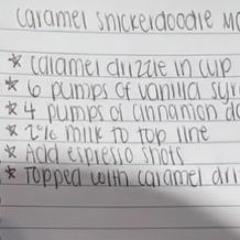 caramel snickerdoodle Ma
* caramel drizzle in cup
* 6 pumps of vanilla syr
* 4 pumps of cinnamon do
* 2% milk to top line
* Add espresso shots
* Topped with caramel dri